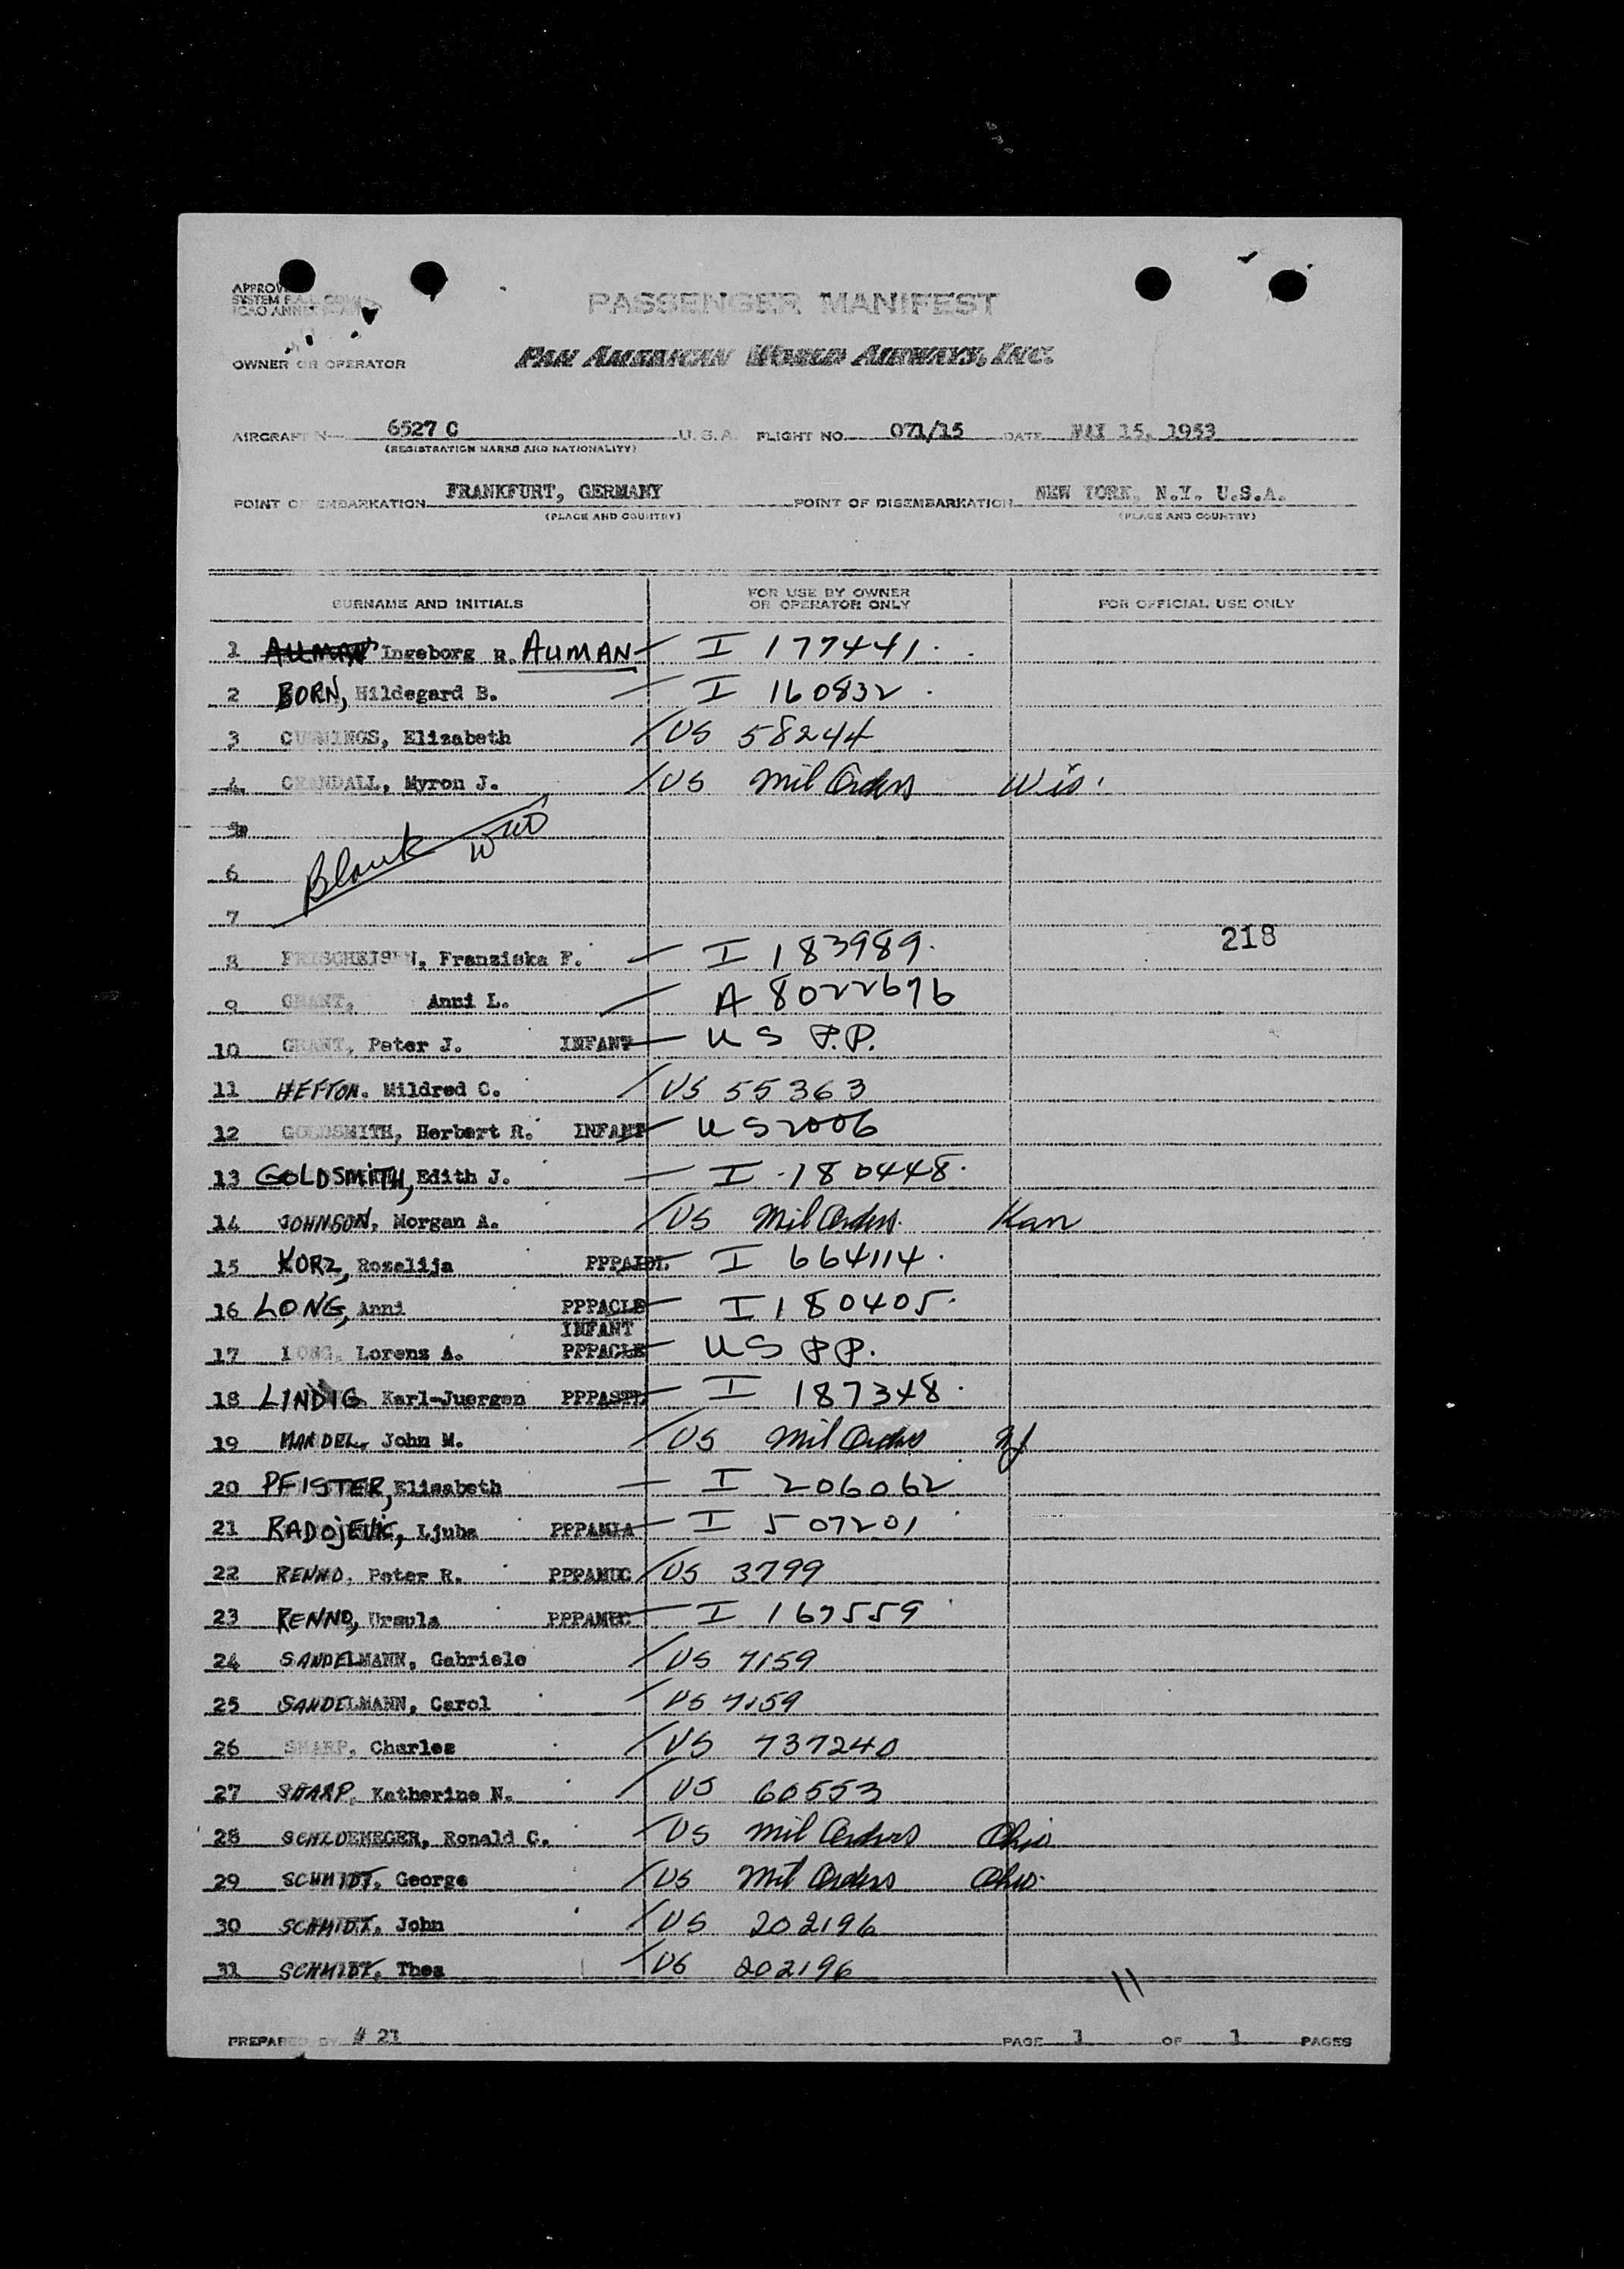 PASSENGER MANIFEST
OWNER OR OPERATOR PAN AMERICAN WORLD AIRWAYS, INC.
AIRCRAFT N 6527 C U.S.A. FLIGHT NO. 071/15 DATE MAY 15, 1953
(REGISTRATION MARKS AND NATIONALITY)
POINT OF EMBARKATION FRANKFURT, GERMANY POINT OF DISEMBARKATION NEW YORK, N.Y. U.S.A.
(PLACE AND COUNTRY) (PLACE AND COUNTRY)
SURNAME AND INITIALS FOR USE BY OWNER OR OPERATOR ONLY FOR OFFICIAL USE ONLY
1 AUMAN Ingeborg R. AUMAN I 177441
2 BORN, Hildegard B. I 160832
3 CUMMINGS, Elizabeth US 58244
4 CRANDALL, Myron J. US Mil Orders Wis.
5
6 Blank
7
218
8 FRISCHEISEN, Franziska F. I 183989
9 GRANT, Anni L. A 8022676
10 GRANT, Peter J. INFANT US P.P.
11 HEFTON, Mildred C. US 55363
12 GOLDSMITH, Herbert R. INFANT US 2006
13 GOLDSMITH, Edith J. I 180448
14 JOHNSON, Morgan A. US Mil Orders Kan
15 KORZ, Rozalija I 664114
16 LONG, Anni PPPACLE I 180405
INFANT
17 LONG, Lorenz A. PPPACLE US PP.
18 LINDIG, Karl-Juergen I 187348
19 MANDEL, John M. US Mil Orders NJ
20 PFISTER, Elisabeth I 206062
21 RADOJEVIC, Ljuba PPPAMIA I 507201
22 RENNO, Peter R. PPPAMUC US 3799
23 RENNO, Ursula PPPAMUC I 167559
24 SANDELMANN, Gabriele US 7159
25 SANDELMANN, Carol US 7159
26 SHARP, Charles US 737240
27 SHARP, Katherine N. US 60553
28 SCHLOEMEGER, Ronald C. US Mil Orders Ohio
29 SCHMIDT, George US Mil Orders Ohio
30 SCHMIDT, John US 202196
31 SCHMIDT, Thea US 202196
11
PREPARED BY # 21 PAGE 1 OF 1 PAGES